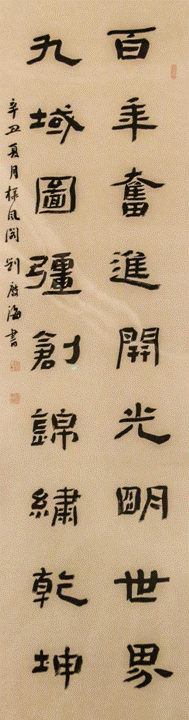 百年奮進開光明世界
九域圖彊創錦繡乾坤
辛丑夏月檪風閣劉啟海書